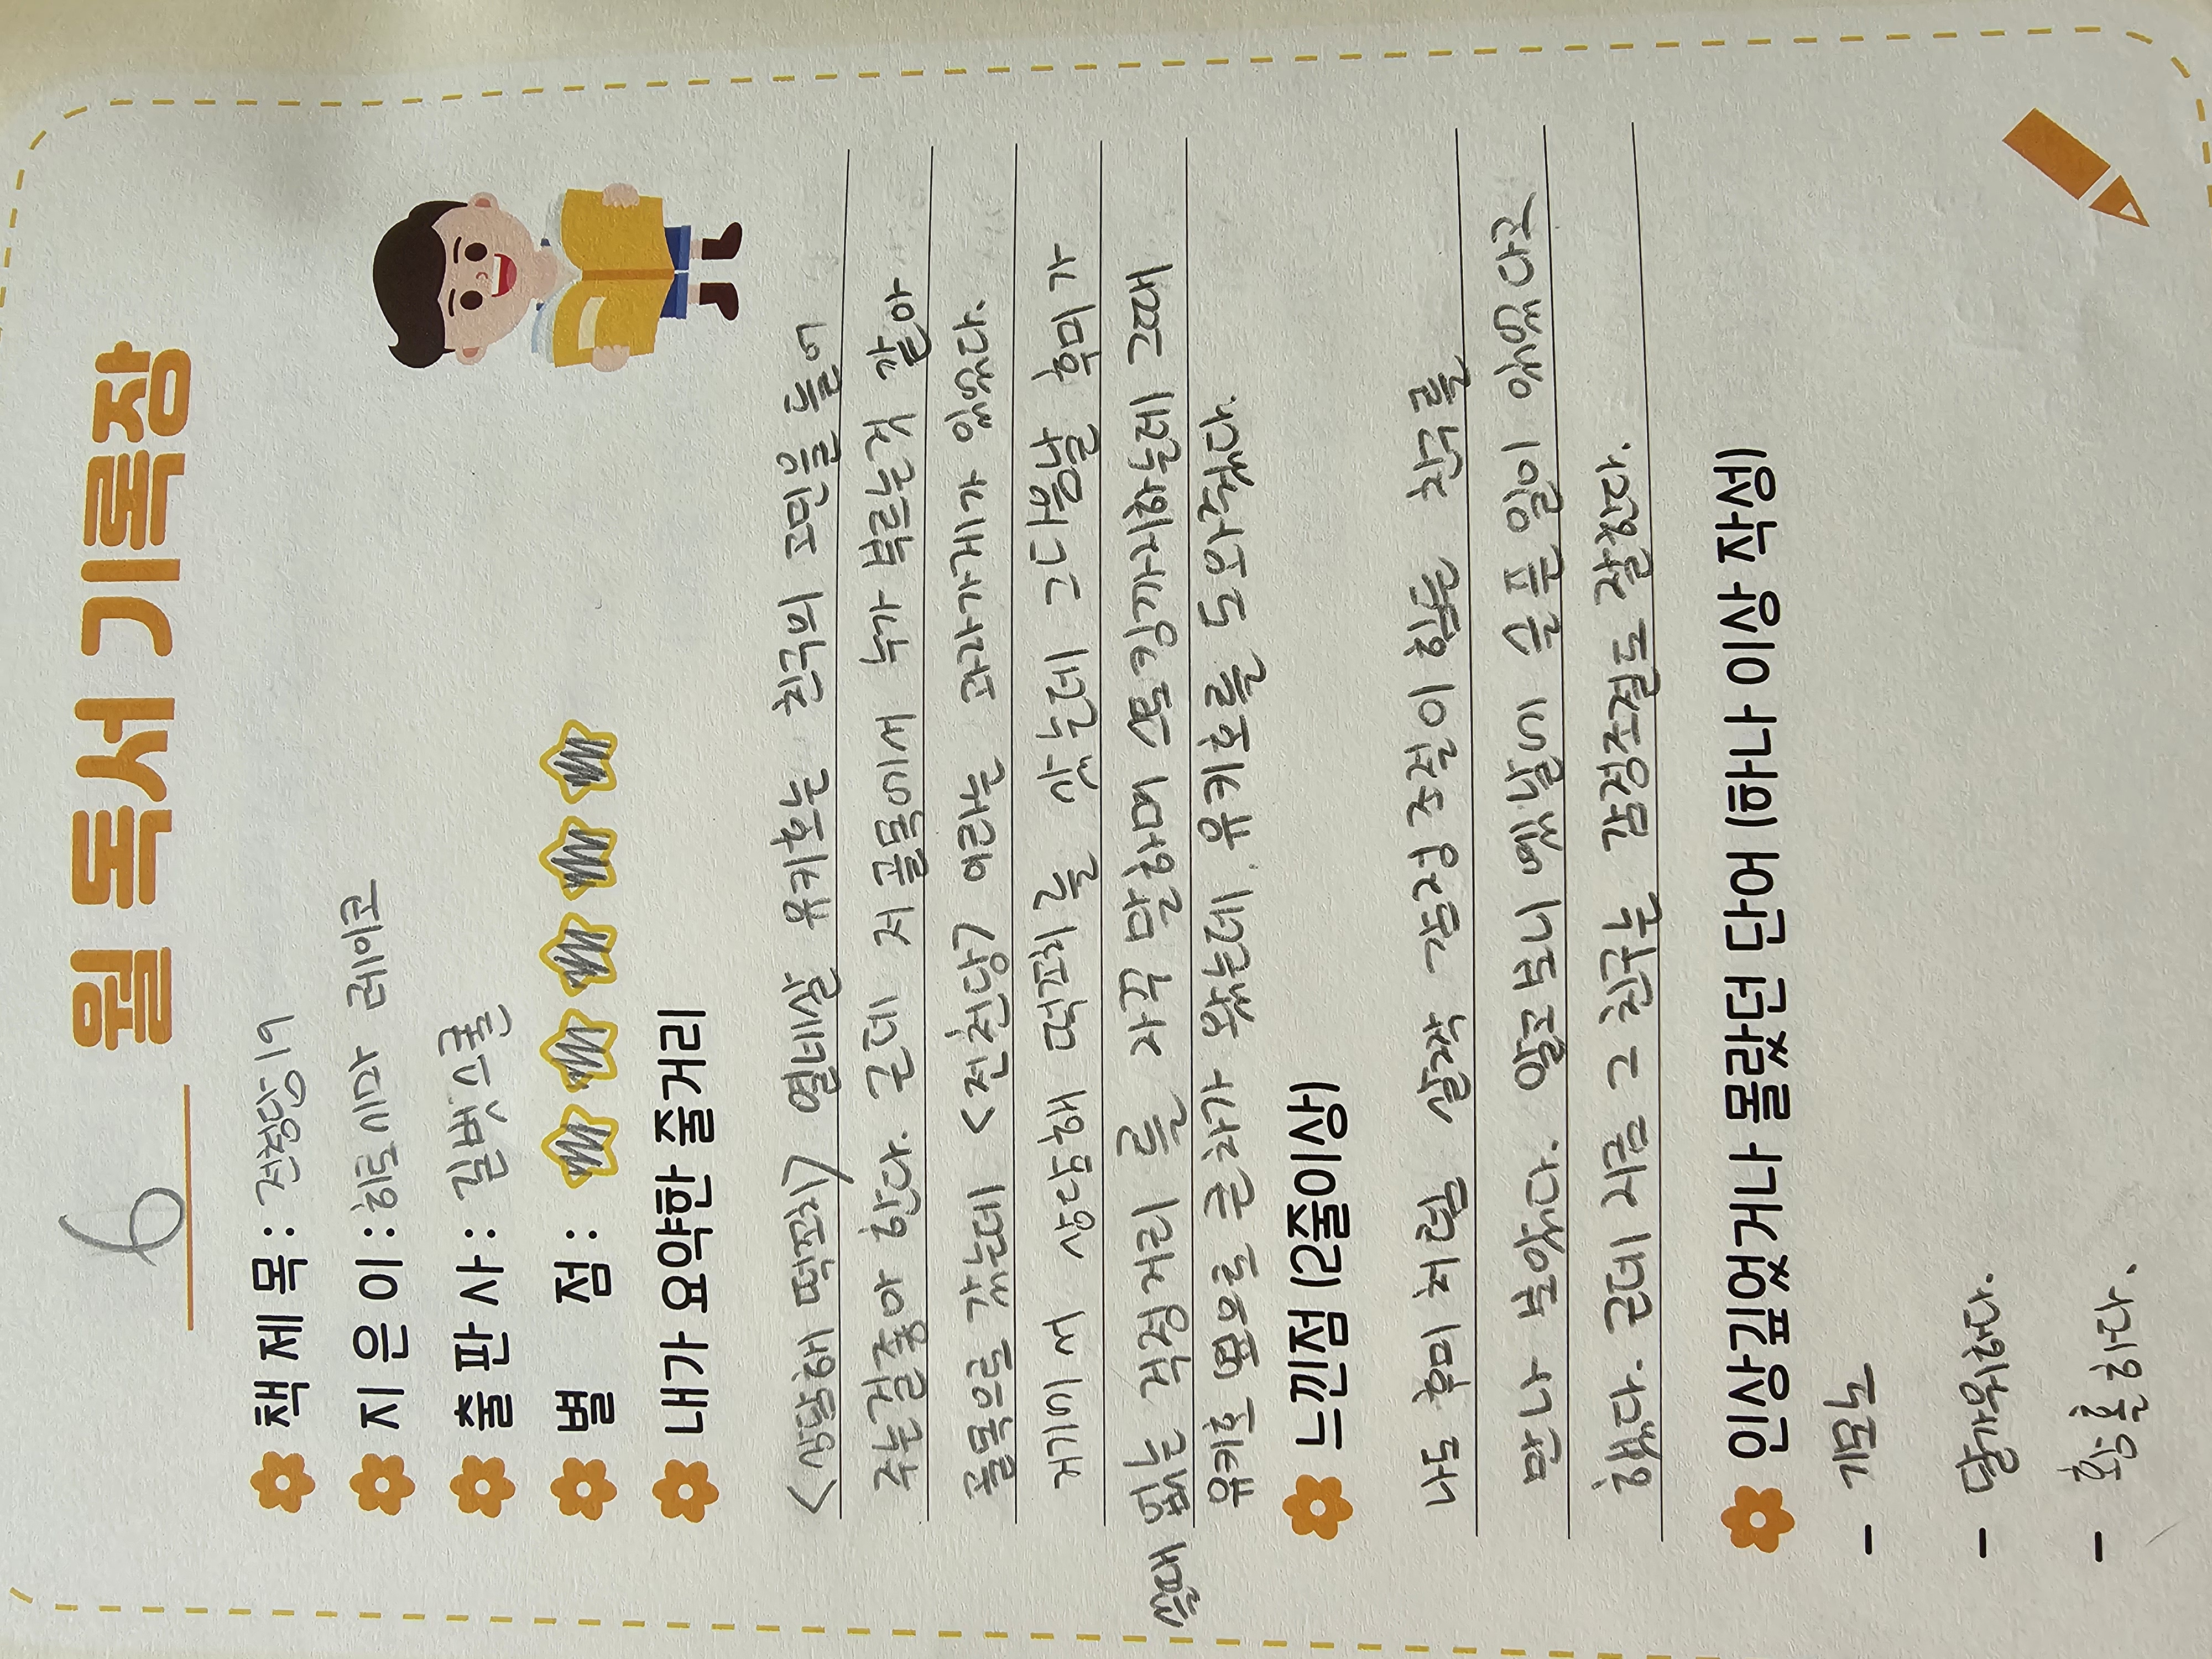 6 월 독서 기록장
책 제 목 : 전청당 19
지 은 이 : 히로시마 레이코
출 판 사 : 길벗스쿨
별 점 :
내가 요약한 줄거리
<상담해 떡꼬치> 열네살 유키호는 친구의 고민을 들어
주는걸좋아 한다. 근데 저 골목에서 누가 부르는것 같아
골목으로 갔는데 <전천당> 이라는 과자가게가 있었다.
거기에서 상담해 떡꼬치를 샀는데 그다음날 후미가
쓸때 없는 걱정거리를 자꾸 말하며 스토킹까지하는데 그때
유키호 옆으로 큰차가 왔는데. 유키호를 도와줬다.
느낀점 (2줄이상)
나도 후미 처럼 살짝 감정 조절이 힘든 친구를
만나 보았다. 알고보니 옛날에 슬픈 일이 있었다고
했다. 근데 지금 그 친구는 감정조절도 잘한다.
인상깊었거나 몰랐던 단어 (하나 이상 작성)
- 기모노
- 달가워하다.
- 황홀하다.